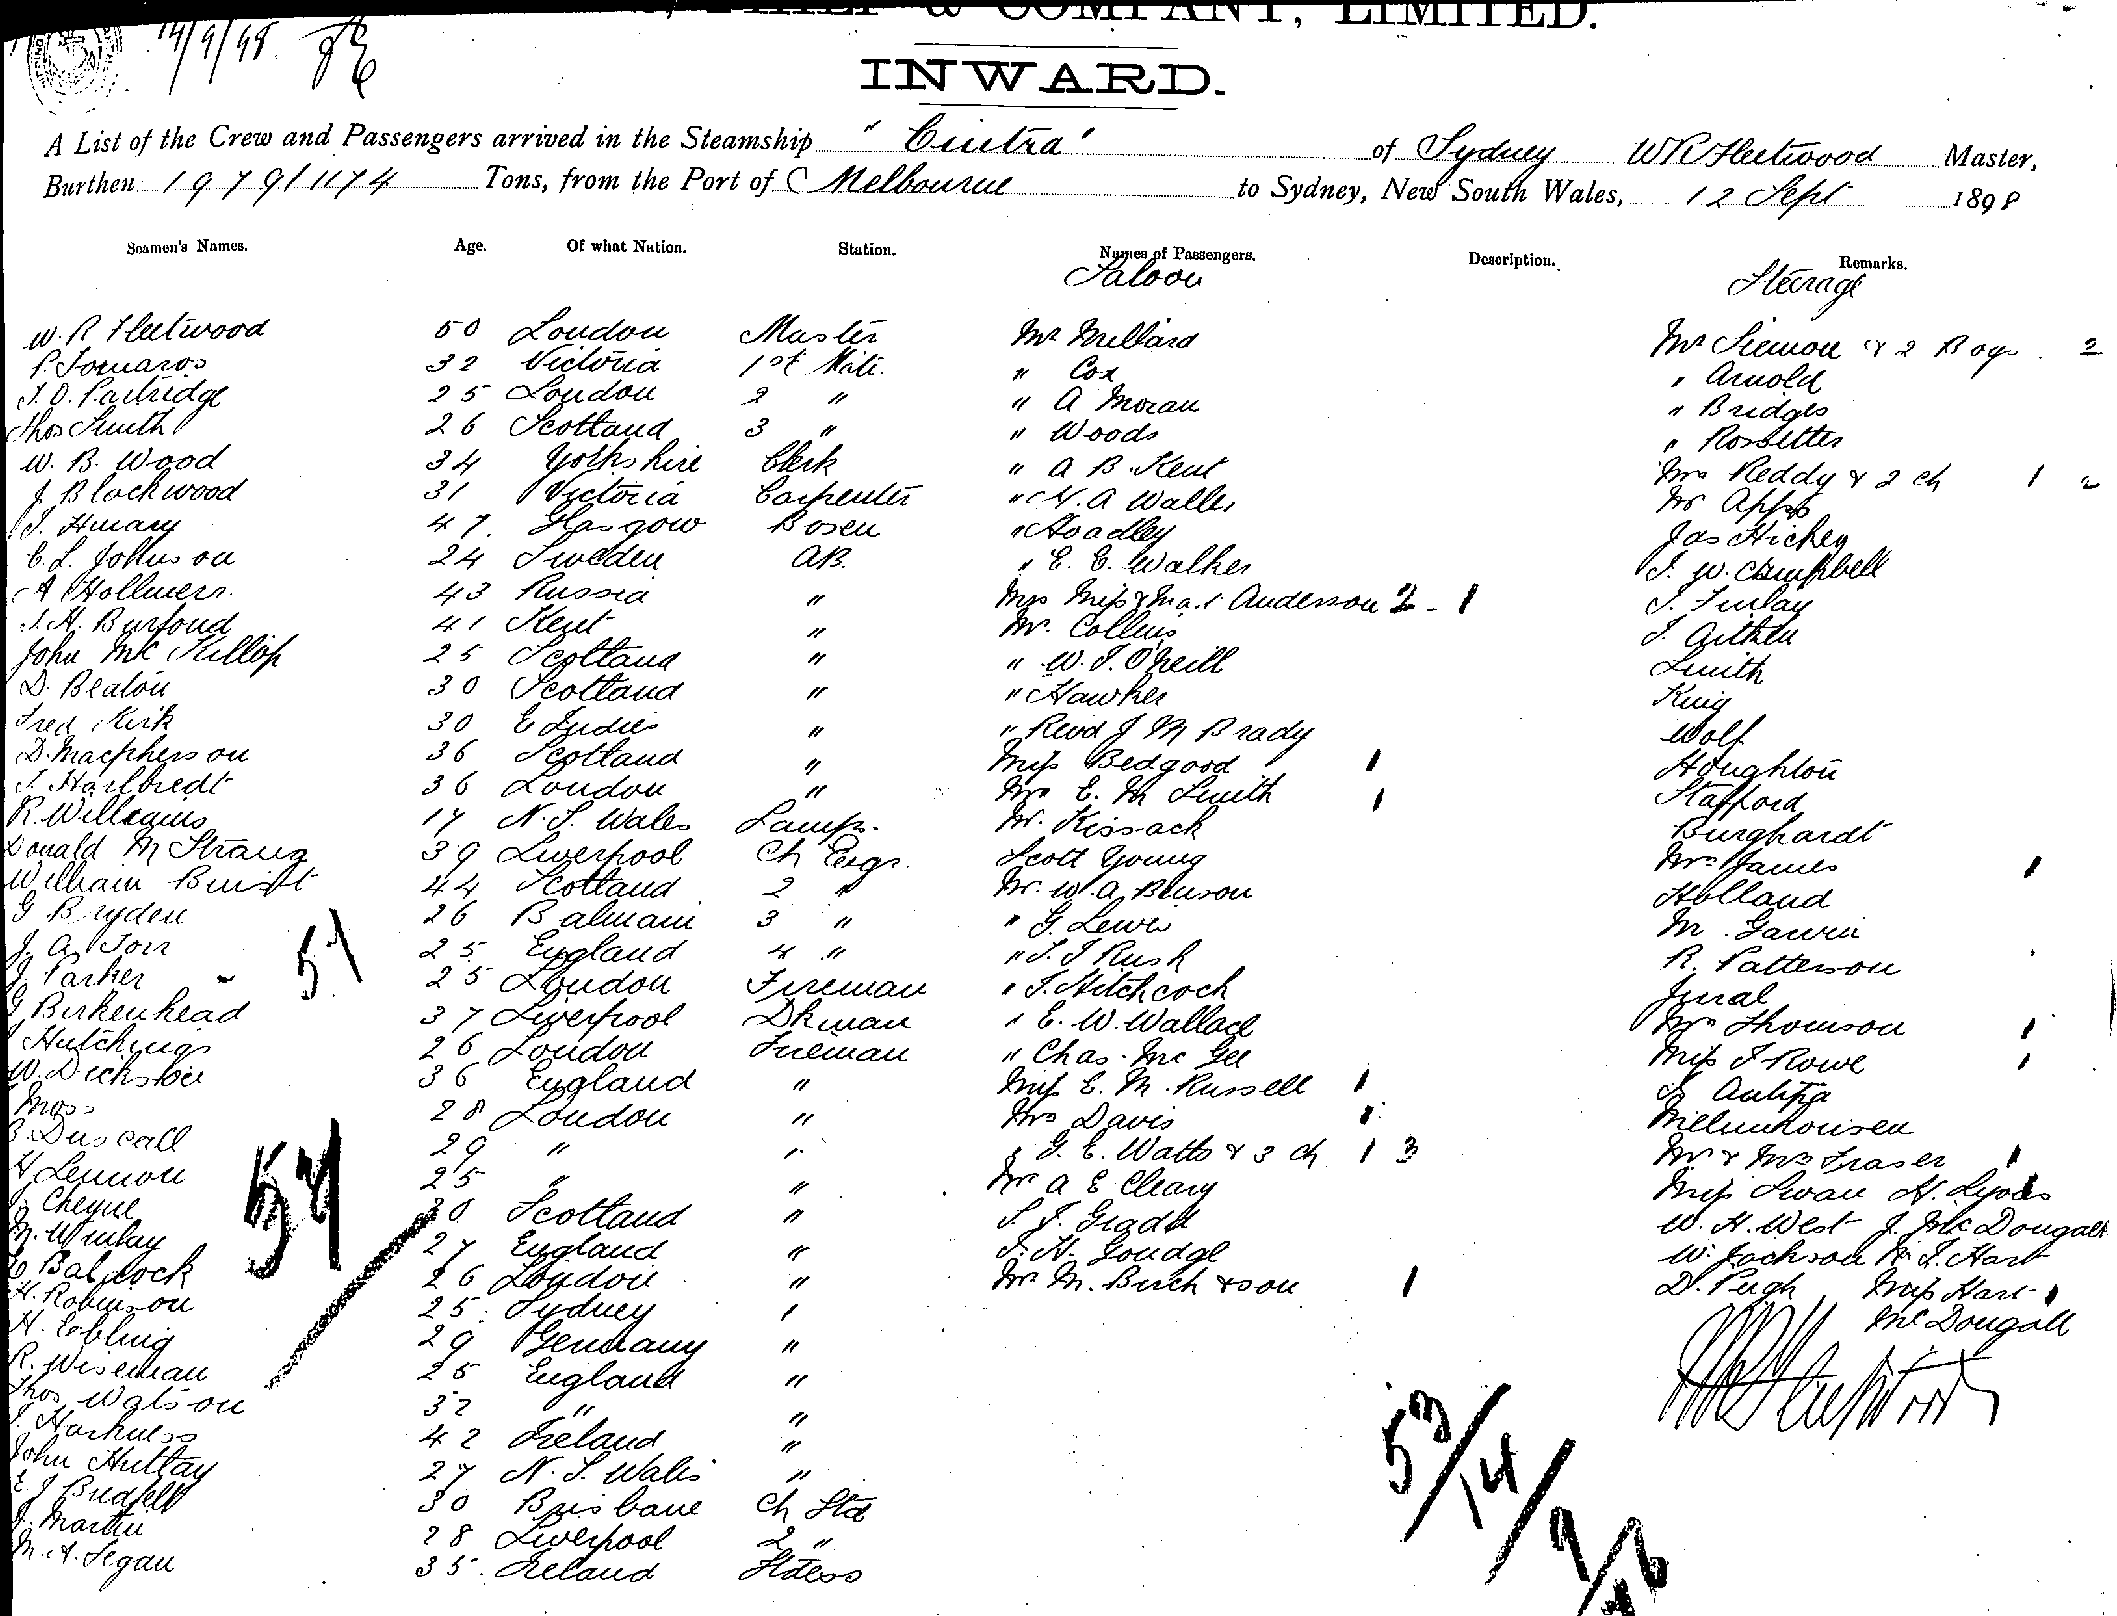 & COMPANY, LIMITED.
14/9/98
INWARD.
A List of the Crew and Passengers arrived in the Steamship "Cintra" of Sydney W R Fleetwood Master,
Burthen 1979/1174 Tons, from the Port of Melbourne to Sydney, New South Wales, 12 Sept 1898
Seamen's Names. Age. Of what Nation. Station. Names of Passengers. Description. Remarks.
Saloon Steerage
W. R Fleetwood 50 London Master Mr Millard Mr Siemon & 2 Boys 2
P. 32 Victoria 1st Mate. " Cox " Arnold
J. O. Partridge 25 London 2 " " A Moran " Bridges
Thos Smith 26 Scotland 3 " " Woods " Rosbetter
W. B. Wood 34 Yorkshire Clerk " A B Kent Mrs Reddy & 2 ch 1 2
J Blackwood 31 Victoria Carpenter " N. A Waller Mr Apps
47 Glasgow Bosen " Hoadley Jas Hickey
C. L. Johnson 24 Sweden AB. " E. E. Walker J. W. Campbell
A Hollmers 43 Russia " Mrs Miss & Mas Anderson 2 - 1 J. Finlay
J. H. Burfoud 41 Kent " Mr. Collins J. Aitken
John McKillop 25 Scotland " " W. J. O'Neill Smith
D. Beaton 30 Scotland " " Hawker King
Fred Kirk 30 E Indies " " Revd J M Brady Wolf
D. Macpherson 36 Scotland " Miss Bedgood 1 Houghton
36 London " Mrs E. M Smith 1 Stafford
R. Williams 17 N. S. Wales Lamps. Mr. Kissack Burghardt
Donald M Strang 39 Liverpool Ch Engr. Scott Young Mrs James 1
William Buist 44 Scotland 2 " Mr. W. A. Benson Holland
G Bryden 26 Balmain 3 " " G. Lewis M. Gawin
J. A. Torr 51 25 England 4 " " J. J Rush R. Patterson
J. Parker 25 London Fireman " J. Hitchcock
G Birkenhead 37 Liverpool Dkman " E. W. Wallace Mrs Thomson 1
Hutchings 26 London Fireman " Chas. McGee Miss J Rowe 1
W. Dickson 36 England " Miss E. M. Russell 1
Moss 28 London " Mrs Davis 1
Duscall 29 " " " G. E. Watts & 3 ch 1 3 Mr & Mrs Fraser 1
H Lennon 54 25 " " Mr A E Cleary Miss Swan H. Lyons
J. Cheyne 30 Scotland " W. H. West J. McDougall
27 England " J. H. Goudge W. Jackson Mr J. Hart
Babcock 26 London " Mr M. Birch & son 1 D. Pugh Miss Hart 1
H. Robinson 25 Sydney " McDougall
H. Ebling 29 Germany "
R. Wiseman 25 England " W R Fleetwood
Thos Watson 32 " "
J. Harkness 42 Ireland "
John 27 N. S. Wales "
E J 30 Brisbane Ch Std
J. Martin 28 Liverpool 2 "
M. A. Segau 35 Ireland Stdess
53/14/9/98